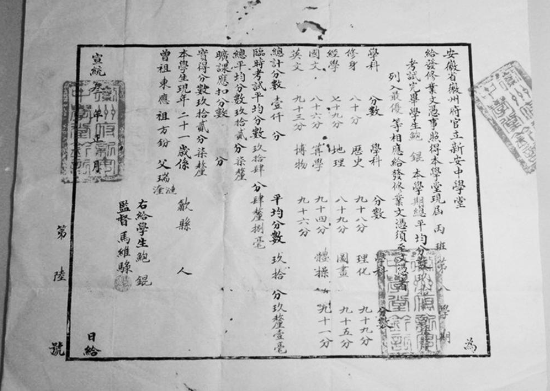 安徽省徽州府官立新安中學堂
為
給發修業文憑事照得本學堂現屆丙班第八學期
考試完畢學生鮑錕本學期總平均分數
列入最優等相應給發修業文憑須至
學科 分數 學科 分數 學科 分數
修身 十分 歷史 九十八 理化 九十九
經學 七十九 地理 八十九 圖畫 九十五
國文 八十六 算學 九十四 體操 九十一
英文 九十三 博物 九十六
總計分數壹仟 分 平均分數玖拾 分玖釐壹毫
臨時考試平均分數玖拾肆 分肆釐捌毫
總平均分數玖拾貳分柒釐
曠課應扣分數 分
實得分數玖拾貳分柒釐
本學生現年二十一歲係 歙縣 人
曾祖東應 祖方份 父瑞
右給學生鮑 錕
監督馬維騄
宣統 年 月
日給
第 陸 號